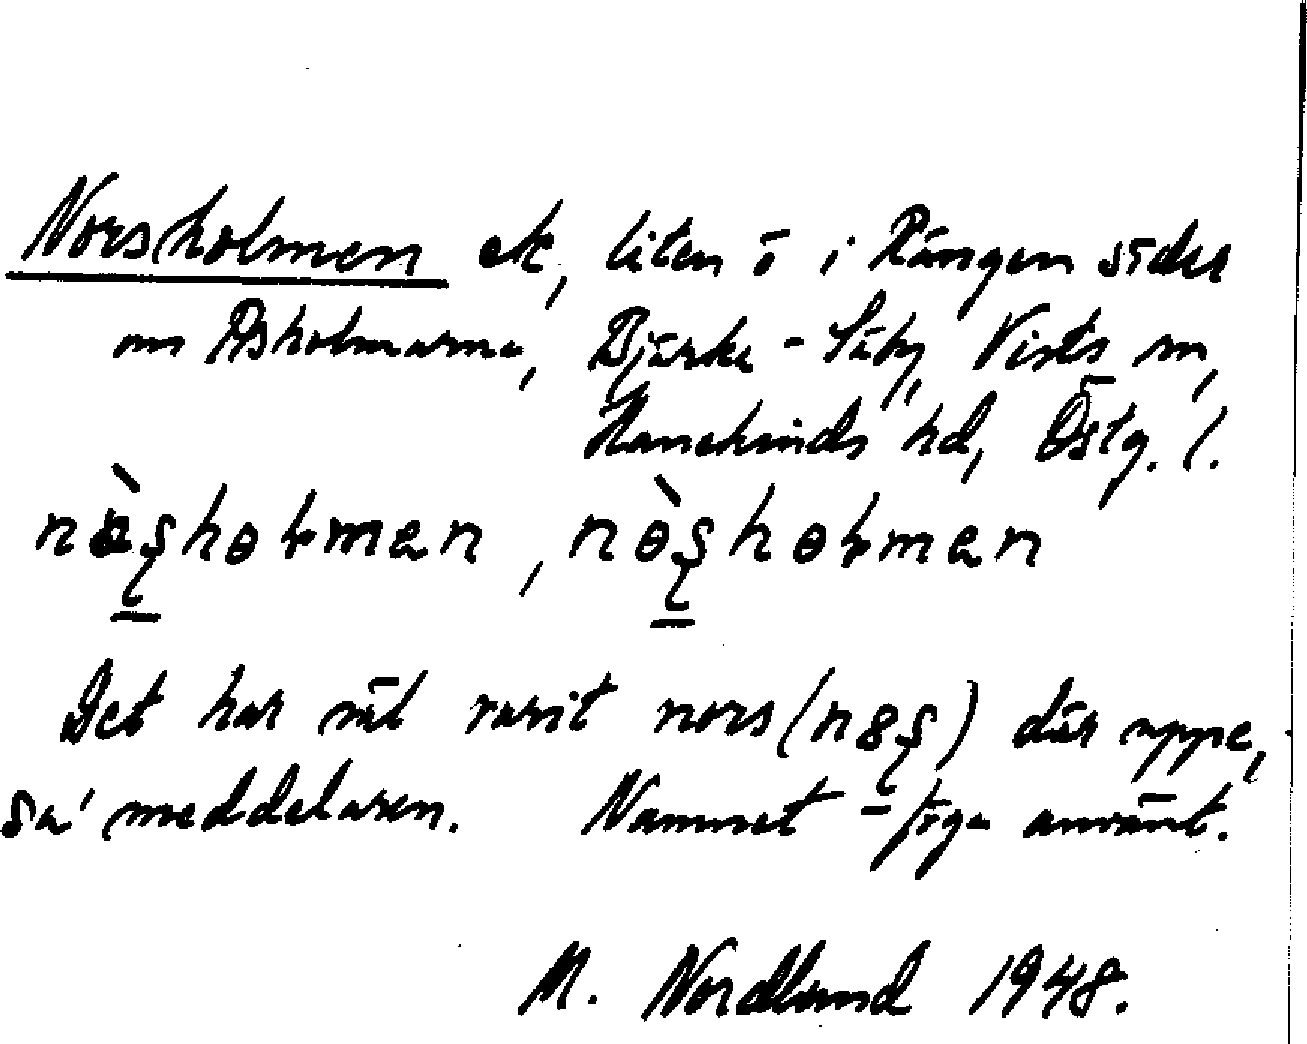 Norsholmen ek, liten ö i Rängen söder
om Åsholmarna, Bjärka-Säby, Vists sn,
Hanekinds hd, Östg. l.
nòʂhoɫmen, nòʂhoɫmen
Det har väl varit nors (n8ʂ) där uppe,
sa' meddelaren. Namnet föga använt.
M. Nordlund 1948.